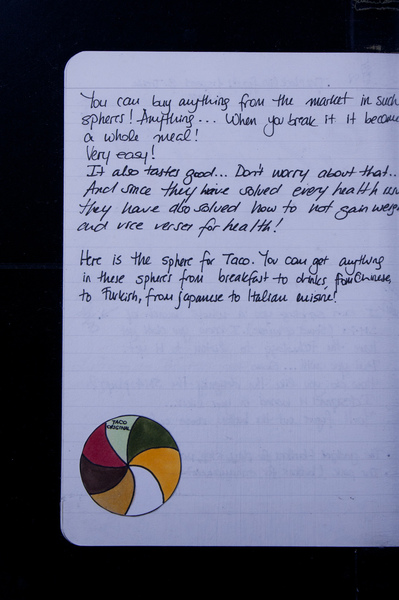 You can buy anything from the market in such
spheres! Anything... When you break it it become
a whole meal!
Very easy!
It also tastes good... Don't worry about that..
And since they have solved every health issu
they have also solved how to not gain weigh
and vice verses for health!
Here is the sphere for Taco. You can get anything
in these spheres from breakfast to drinks, from Chinese,
to Turkish, from japanese to Italian cuisine!
TACO
ORIGINAL